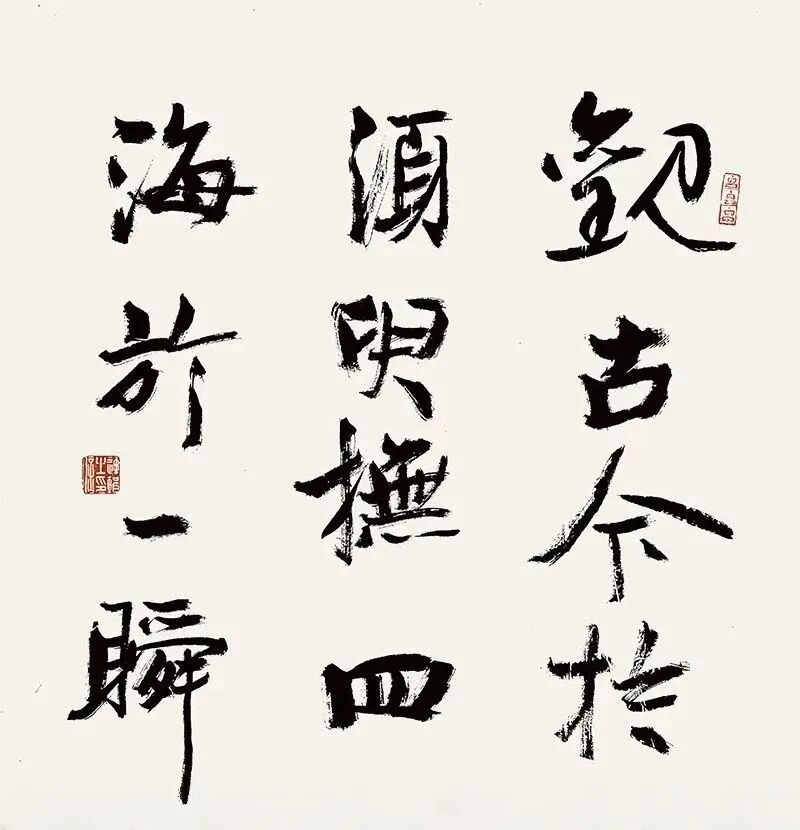 觀古今於
須臾撫四
海於一瞬